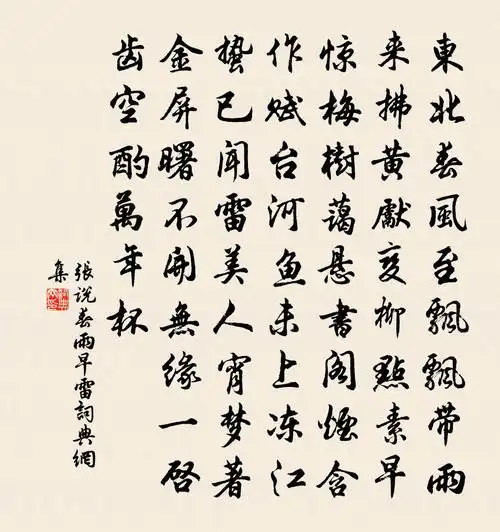 東北春風至飄飄帶雨
来拂黄獻变柳點素早
惊梅樹蔼悬書阁煙含
作赋台河鱼未上冻江
蛰已闻雷美人宵梦著
金屏曙不開無缘一启
齿空酌萬年杯
張説春雨早雷詞典網
集